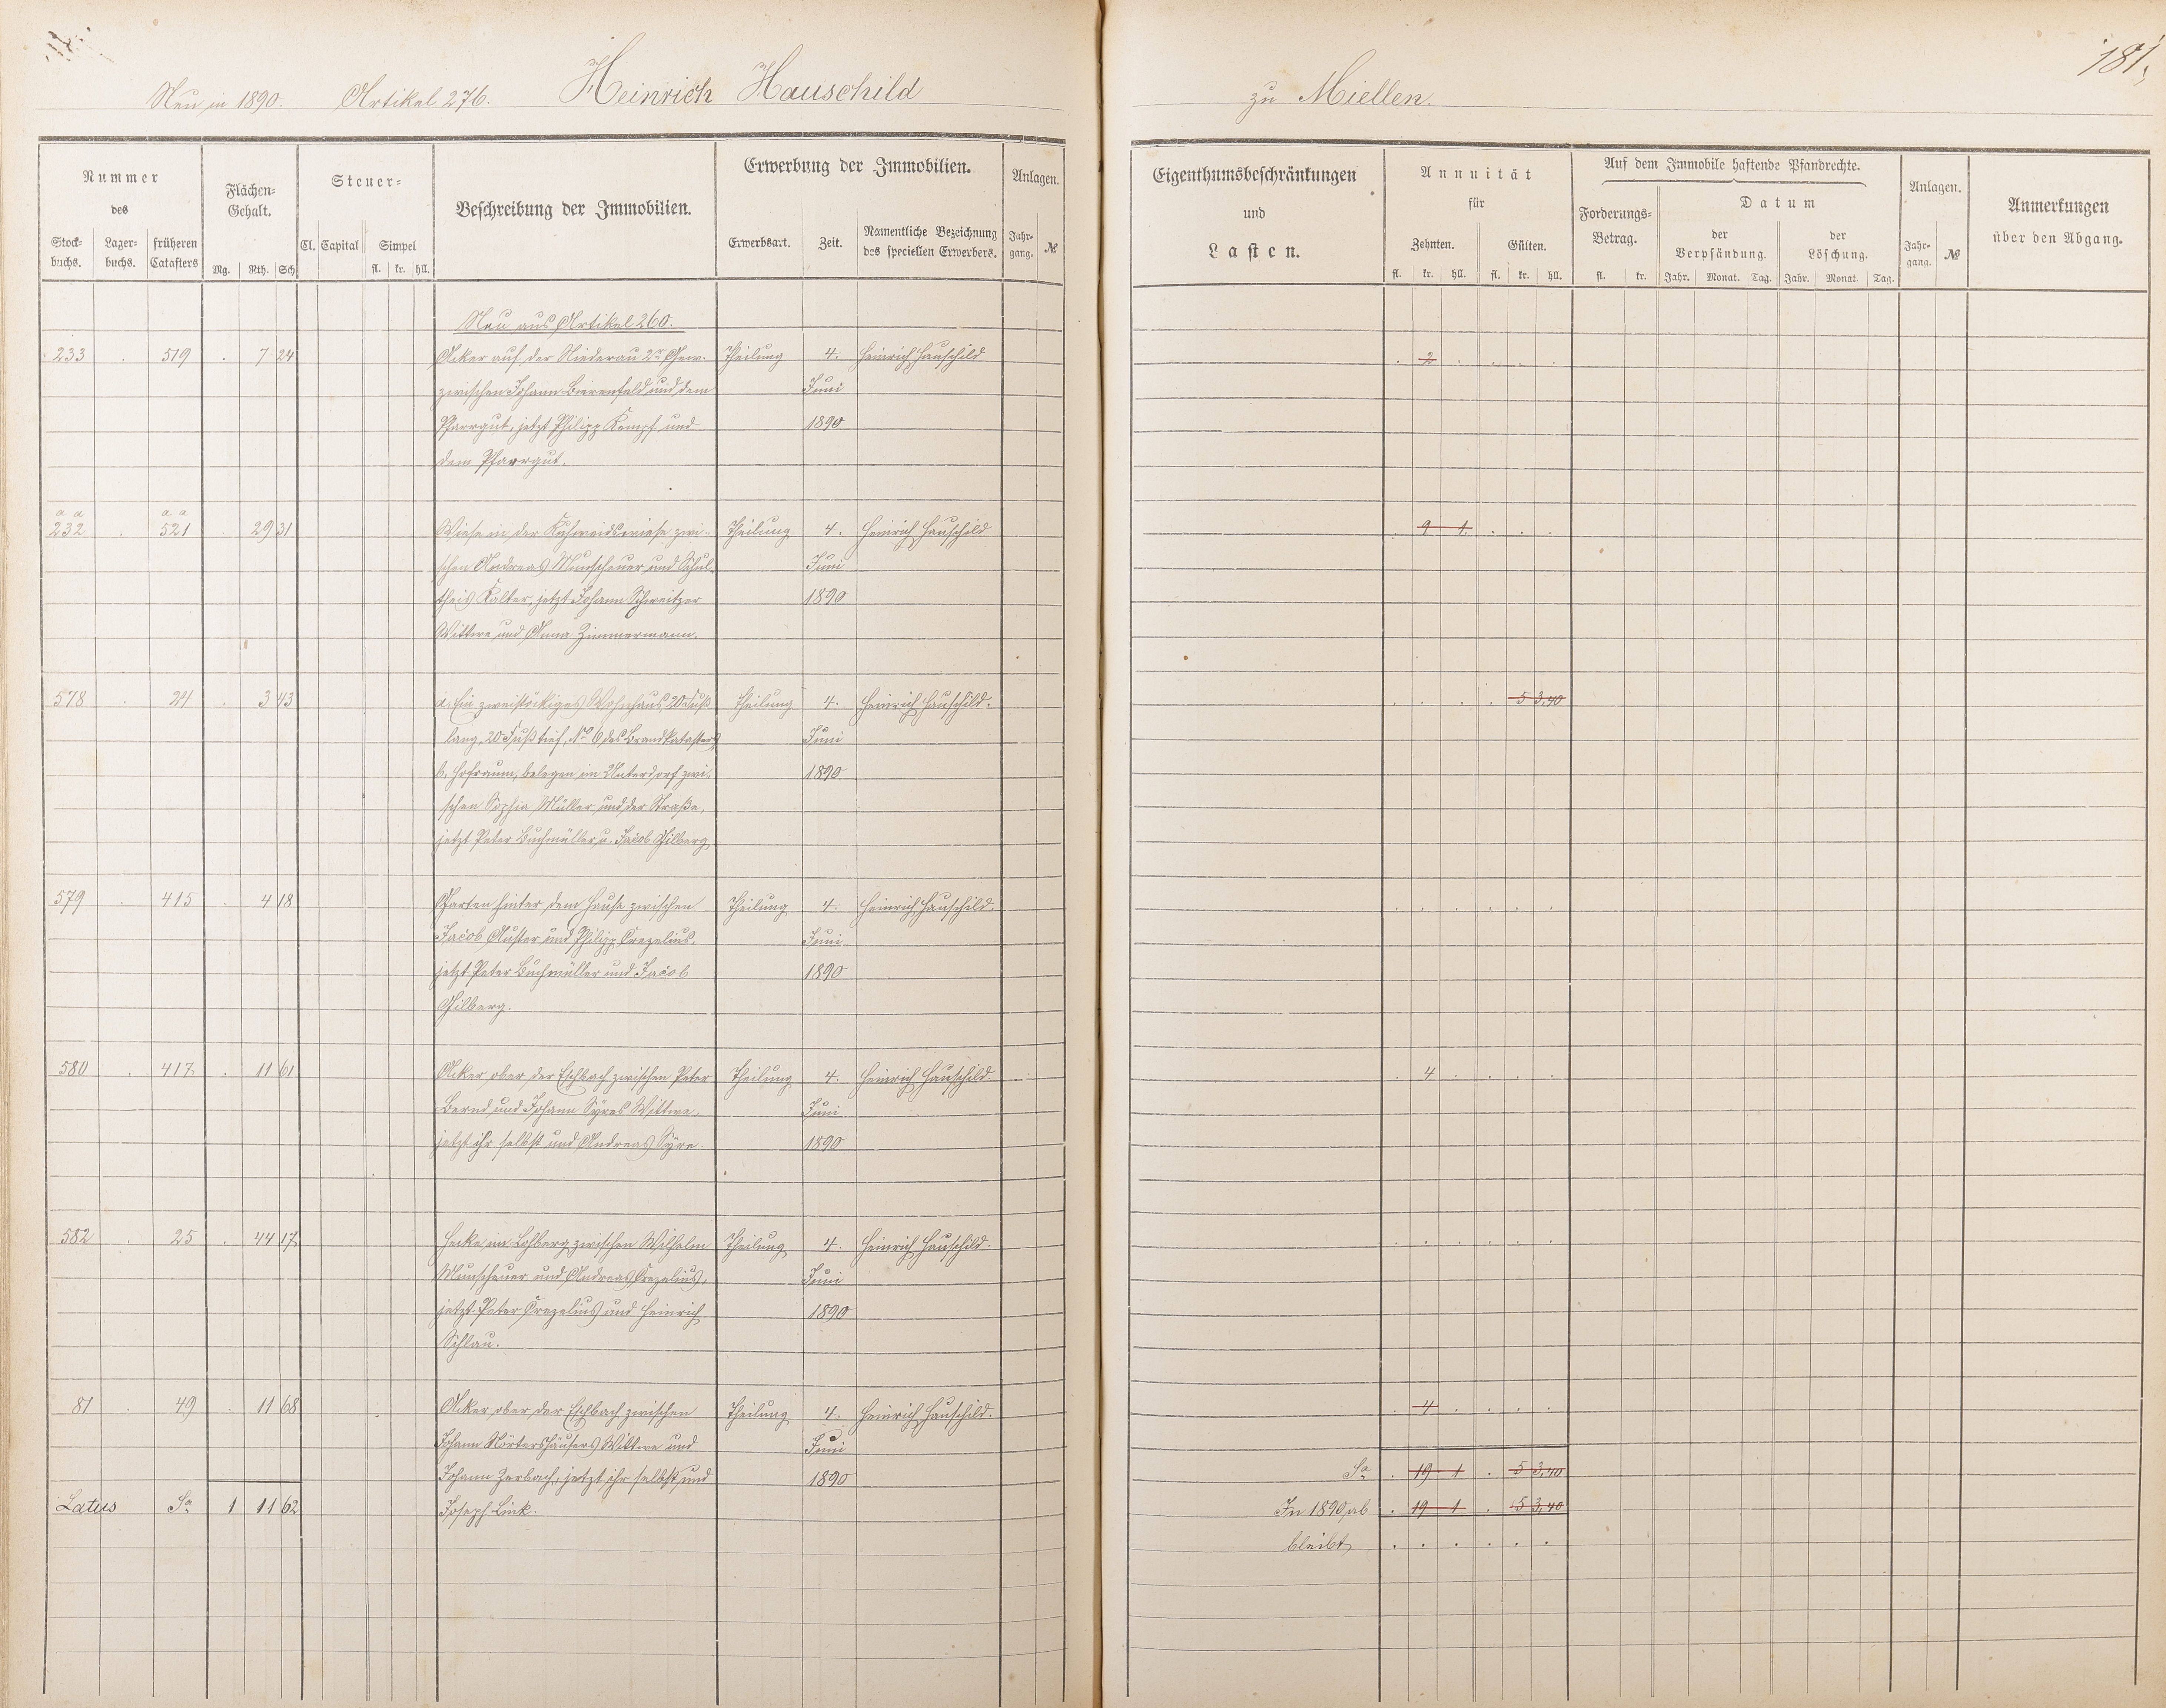 Neu in 1890. Artikel 276. Heinrich Hauschild zu Miellen.
181.
Nummer
des
Stock-
buchs.
Lager-
buchs.
früheren
Catasters
Flächen-
Gehalt.
Mg. Rth. Sch
Steuer-
Cl. Capital Simpel
fl. kr. hll.
Beschreibung der Immobilien.
Erwerbung der Immobilien.
Erwerbsart. Zeit.
Namentliche Bezeichnung
des speciellen Erwerbers.
Anlagen.
Jahr-
gang. №
Eigenthumsbeschränkungen
und
Lasten.
Annuität
für
Zehnten. Gülten.
fl. kr. hll. fl. kr. hll.
Auf dem Immobile haftende Pfandrechte.
Forderungs-
Betrag.
fl. kr.
Datum
der
Verpfändung.
Jahr. Monat. Tag.
der
Löschung.
Jahr. Monat. Tag.
Anlagen.
Jahr-
gang. №
Anmerkungen
über den Abgang.
Neu aus Artikel 260.
233 . 519 . 7 24 Acker auf der Niederau 2r Gew. Theilung 4. Heinrich Hauschild . 2 . . . .
zwischen Johann Bierenfeld und dem Juni
Pfarrgut, jetzt Philipp Kempf und 1890
dem Pfarrgut.
a a a a
232 . 521 . 29 31 Wiese in der Kuhweidswiese zwi- Theilung 4. Heinrich Hauschild . 9 1 . . .
schen Andreas Munscheuer und Schul- Juni
theis Kalter, jetzt Johann Schweitzer 1890
Wittwe und Anna Zimmermann.
578 . 24 . 3 43 a. Ein zweistöckiges Wohnhaus, 20 Fuß Theilung 4. Heinrich Hauschild. . . . . 5 3,40
lang, 20 Fuß tief, No 6 des Brandkatasters Juni
b. Hofraum, belegen im Unterdorf zwi- 1890
schen Sophia Müller und der Straße,
jetzt Peter Buchmüller u. Jacob Gilberg
579 . 415 . 4 18 Garten hinter dem Hause zwischen Theilung 4. Heinrich Hauschild. . . . . . .
Jacob Auster und Philipp Crezelius, Juni
jetzt Peter Buchmüller und Jacob 1890
Gilberg.
580 . 417 . 11 61 Acker ober der Eschbach zwischen Peter Theilung 4. Heinrich Hauschild. . 4 . . . .
Bernd und Johann Syres Wittwe, Juni
jetzt ihr selbst und Andreas Syre. 1890
582 . 25 . 44 17 Hecke im Lohberg zwischen Wilhelm Theilung 4. Heinrich Hauschild. . . . . . .
Munscheuer und Andreas Crezelius, Juni
jetzt Peter Crezelius und Heinrich 1890
Schlau.
81 . 49 . 11 68 Acker ober der Eschbach zwischen Theilung 4. Heinrich Hauschild. . 4 . . . .
Johann Nörtershäusers Wittwe und Juni
Johann Zerbach, jetzt ihr selbst und 1890 Sa . 19 1 . 5 3,40
Latus Sa 1 11 62 Joseph Link. In 1890 ab . 19 1 . 5 3,40
bleibt . . . . . .